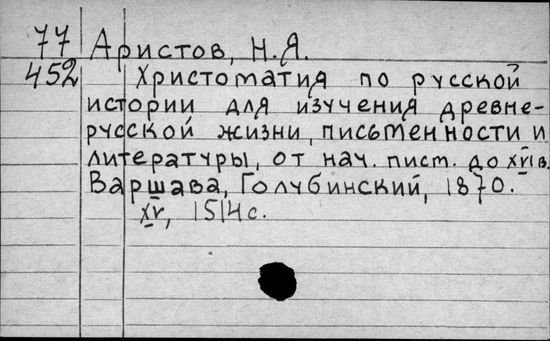 77 Аристов, Н.Я.
452 Христоматия по русской
истории для изучения древне-
русской жизни, письменности и
литературы, от нач. пист. до XVI в.
Варшава, Голубинский, 1870.
XV, 1514 с.